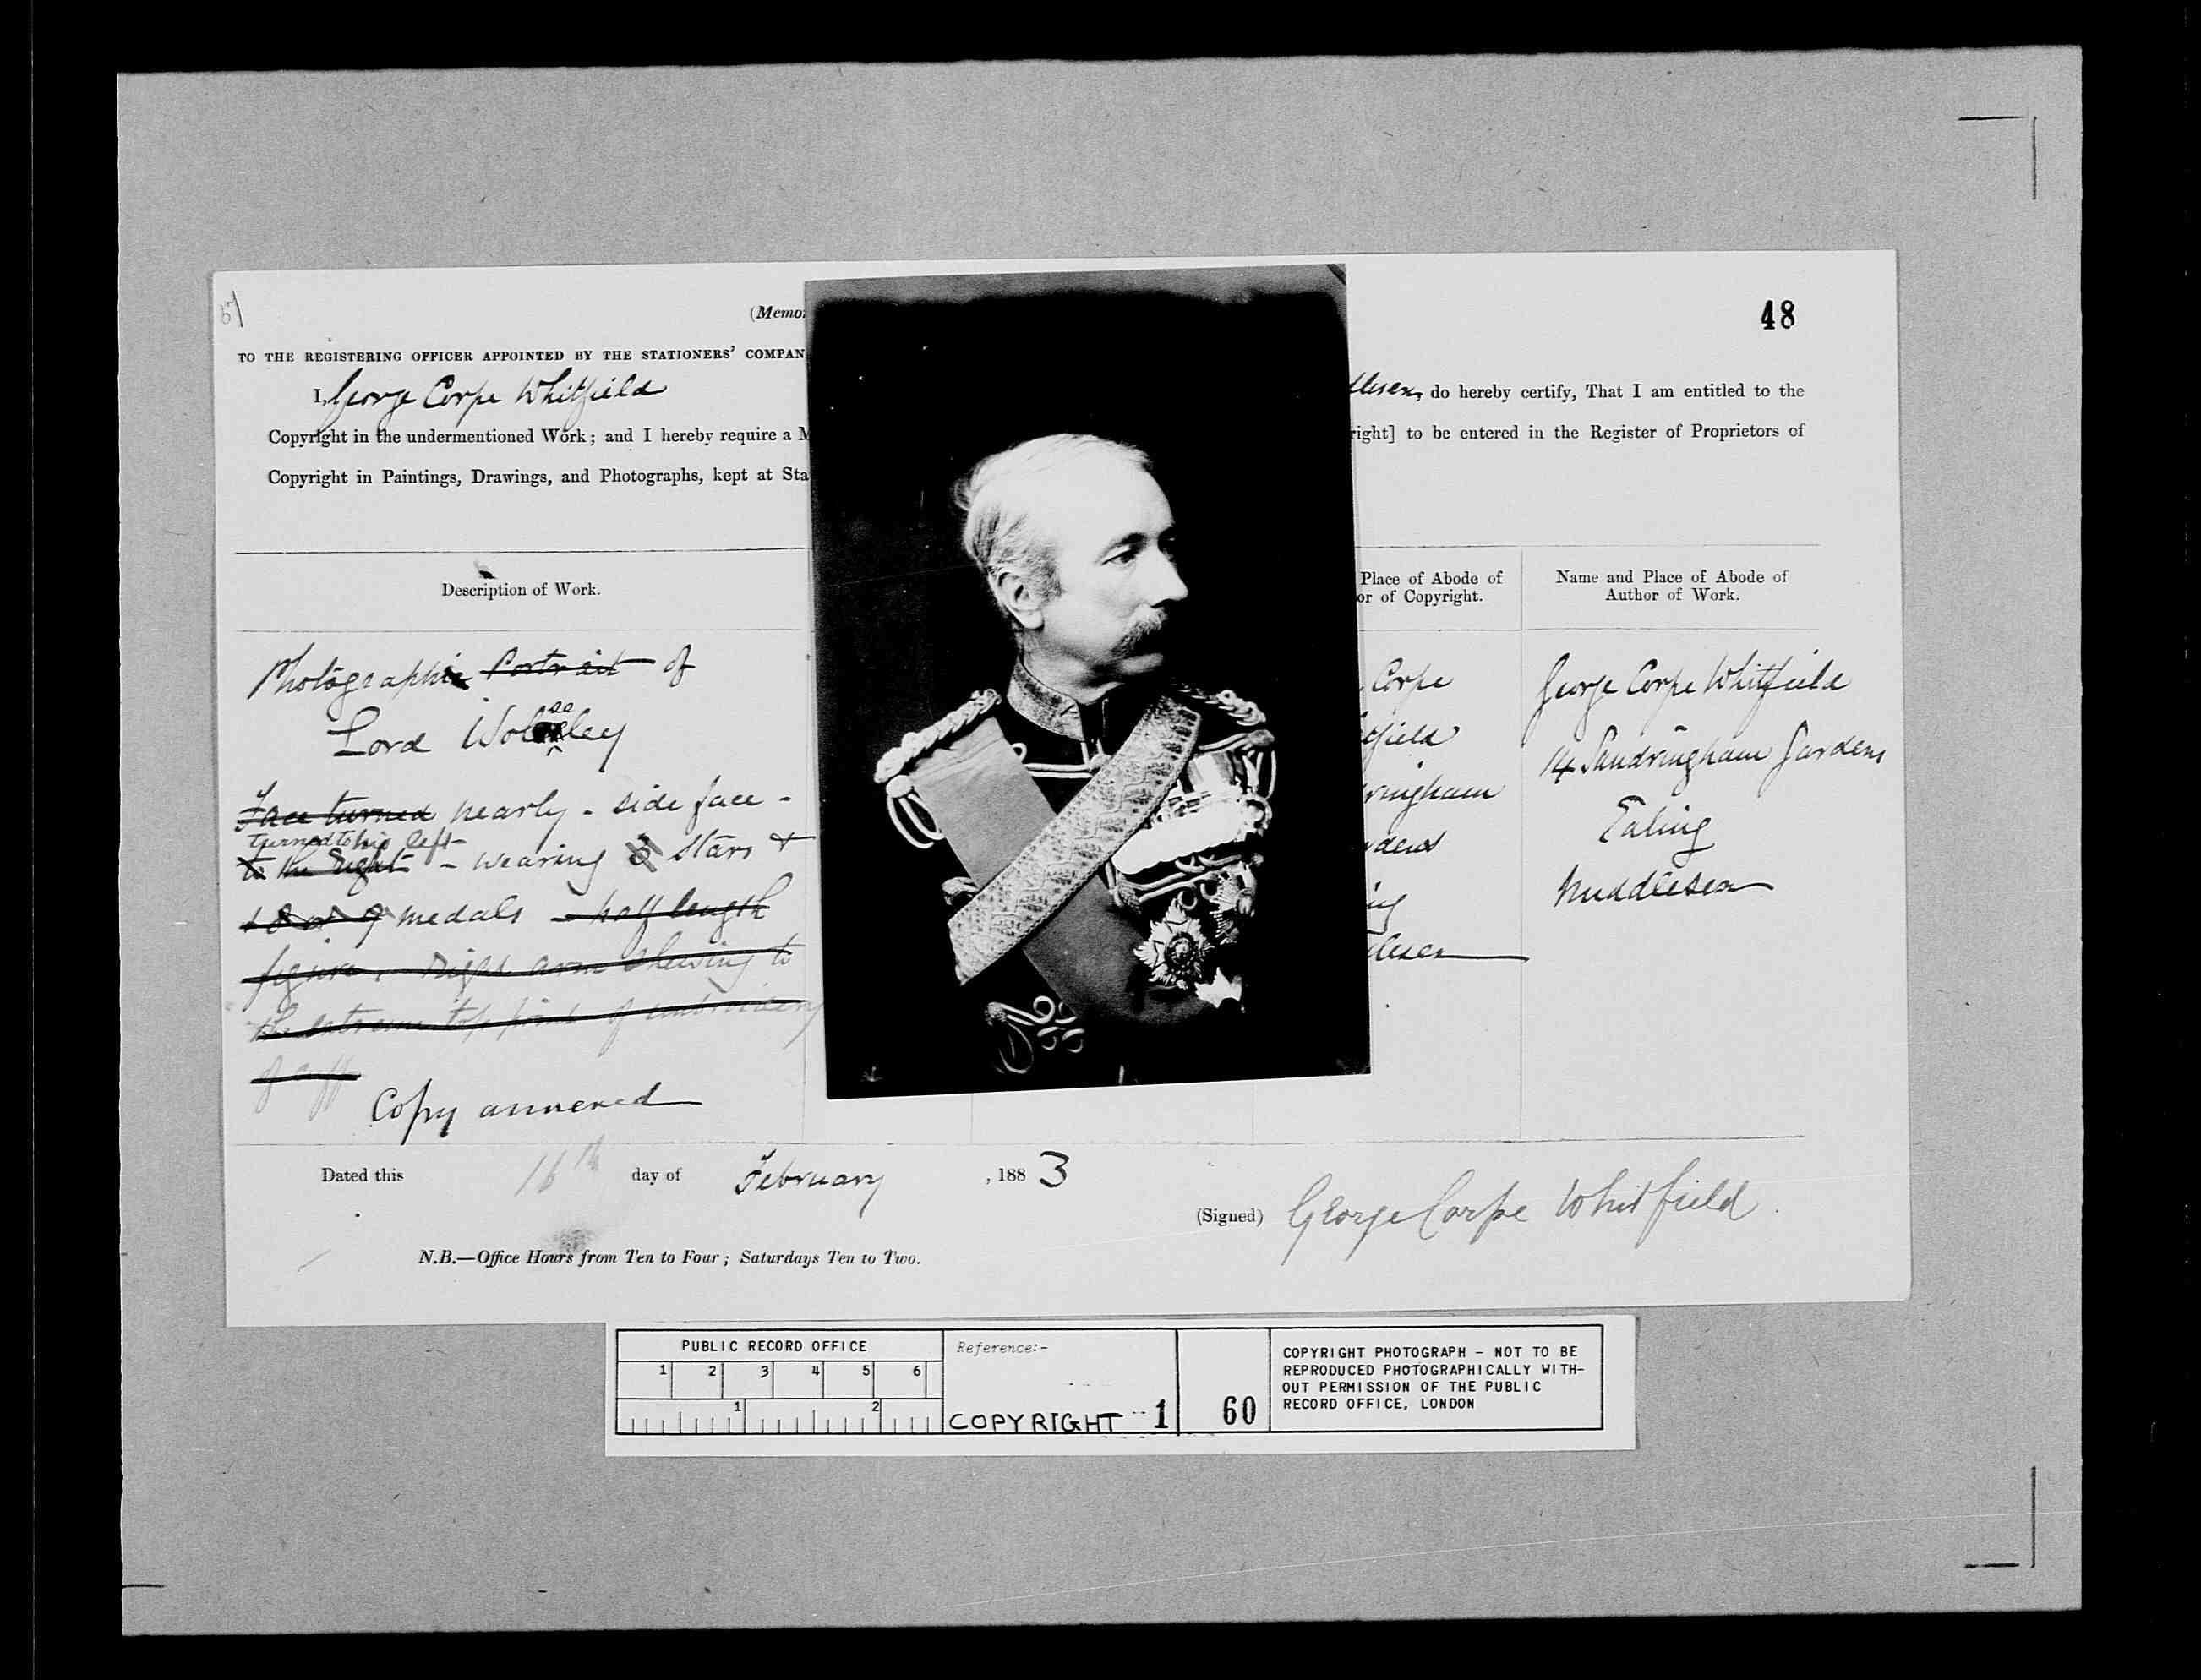 57
48
(Memo
TO THE REGISTERING OFFICER APPOINTED BY THE STATIONERS' COMPAN
I, George Corpe Whitfield
dlesex, do hereby certify, That I am entitled to the
Copyright in the undermentioned Work; and I hereby require a M
right] to be entered in the Register of Proprietors of
Copyright in Paintings, Drawings, and Photographs, kept at Sta
Description of Work.
Place of Abode of
or of Copyright.
Name and Place of Abode of
Author of Work.
Photographic Portrait of
Lord Wolseley
Face turned nearly - side face -
turned to his left
to the Right - wearing 3 stars &
+ 8 or 9 medals - half length
figure, right arm shewing to
the extreme top point of embroidery
of cuff
Copy annexed
Corpe
tfield
ringham
rdens
ing
dlesex
George Corpe Whitfield
14 Sandringham Gardens
Ealing
Middlesex
Dated this 16th day of February, 1883
(Signed) George Corpe Whitfield.
N.B.—Office Hours from Ten to Four; Saturdays Ten to Two.
PUBLIC RECORD OFFICE
1 2 3 4 5 6
1 2
Reference:-
COPYRIGHT 1 60
COPYRIGHT PHOTOGRAPH - NOT TO BE
REPRODUCED PHOTOGRAPHICALLY WITH-
OUT PERMISSION OF THE PUBLIC
RECORD OFFICE, LONDON